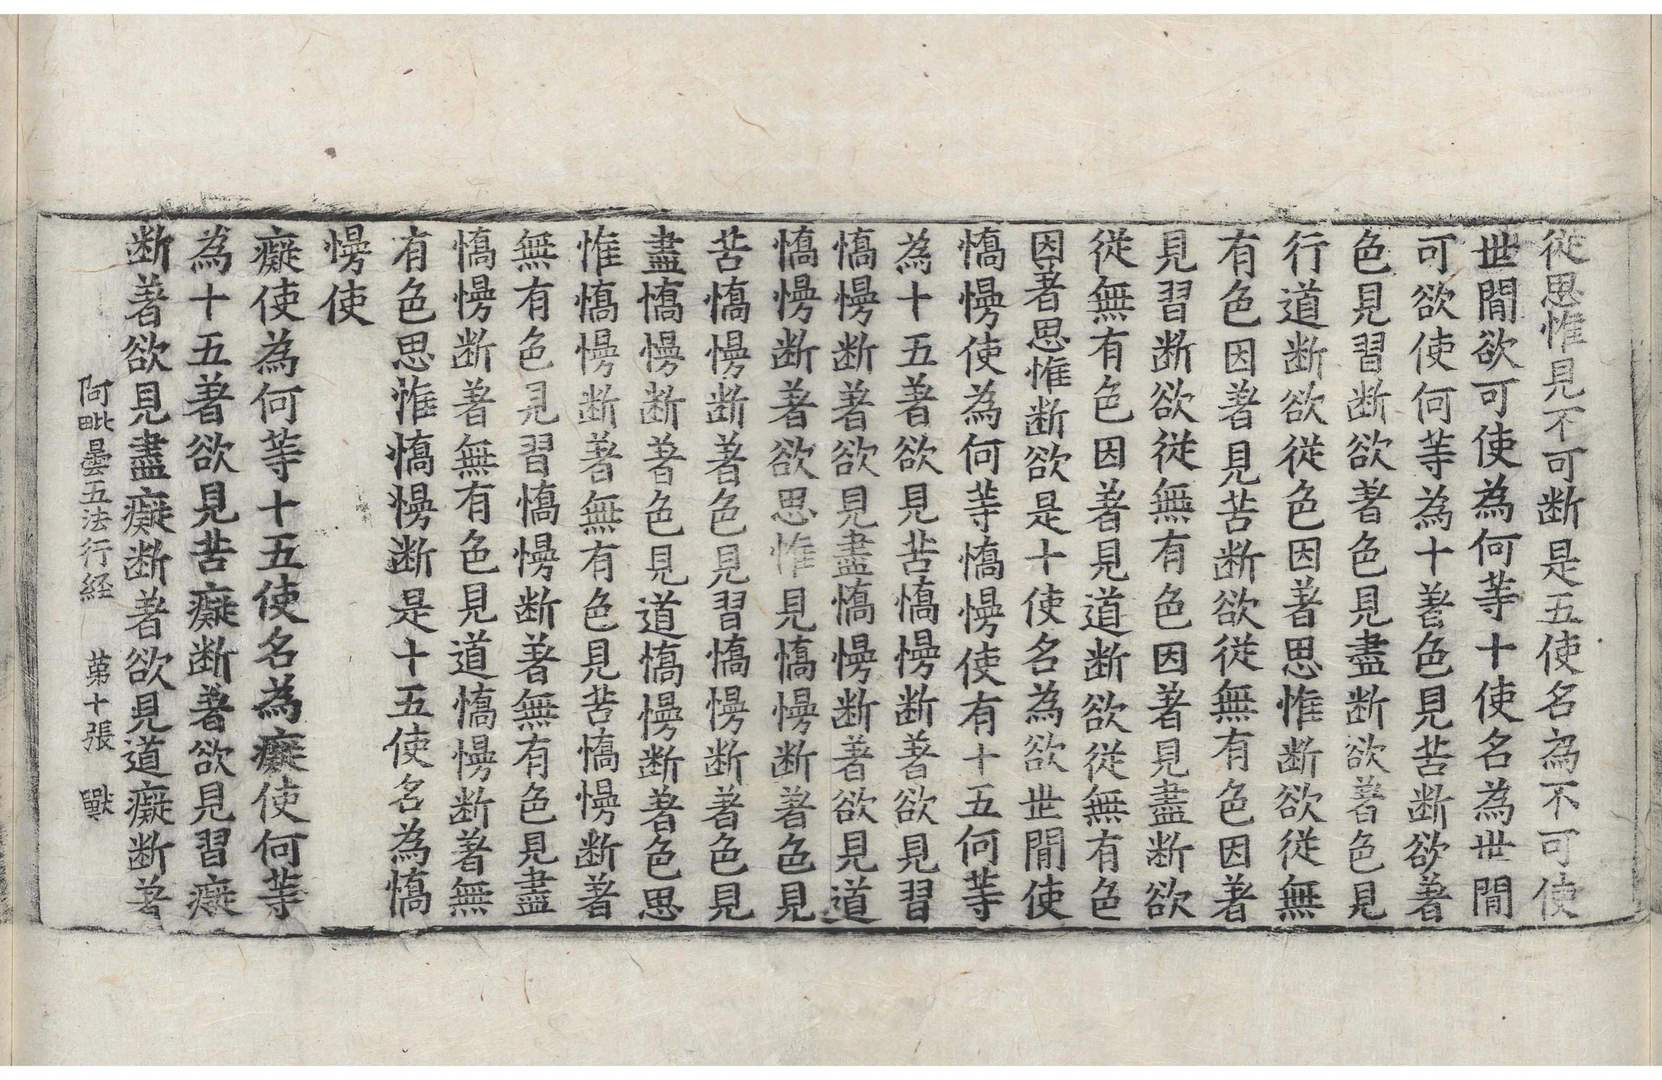 從思惟見不可断是五使名為不可使
世間欲可使為何等十使名為世間
可欲使何等為十著色見苦断欲著
色見習断欲著色見盡断欲著色見
行道断欲從色因著思惟断欲從無
有色因著見苦断欲從無有色因著
見習断欲從無有色因著見盡断欲
從無有色因著見道断欲從無有色
因著思惟断欲是十使名為欲世間使
憍慢使為何等憍慢使有十五何等
為十五著欲見苦憍慢断著欲見習
憍慢断著欲見盡憍慢断著欲見道
憍慢断著欲思惟見憍慢断著色見
苦憍慢断著色見習憍慢断著色見
盡憍慢断著色見道憍慢断著色思
惟憍慢断著無有色見苦憍慢断著
無有色見習憍慢断著無有色見盡
憍慢断著無有色見道憍慢断著無
有色思惟憍慢断是十五使名為憍
慢使
癡使為何等十五使名為癡使何等
為十五著欲見苦癡断著欲見習癡
断著欲見盡癡断著欲見道癡断著
阿毗曇五法行経 第十張 獸